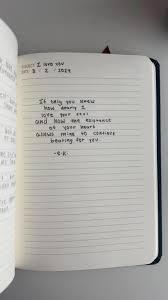 SUBJECT: I love you
DATE: 3 / 2 / 2024
If only you knew
how dearly I
love your soul
and how the existence
of your heart
allows mine to continue
beating for you.
-E.K.